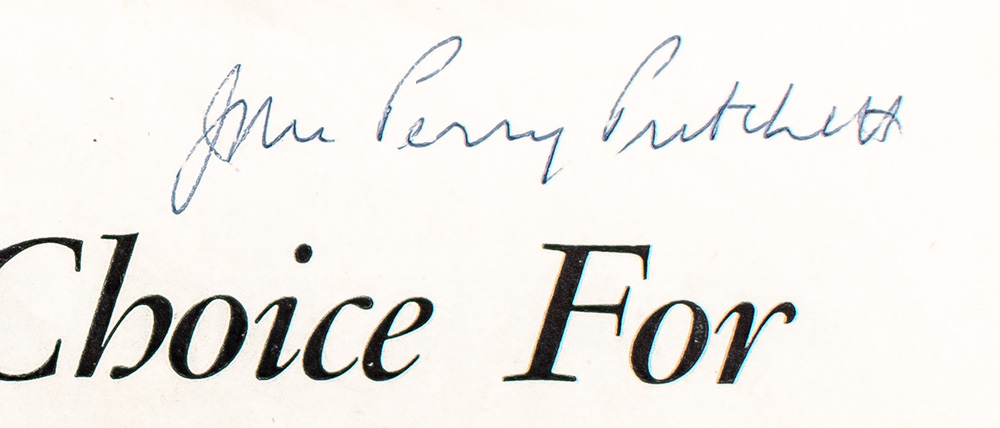 John Perry Pritchett
Choice For